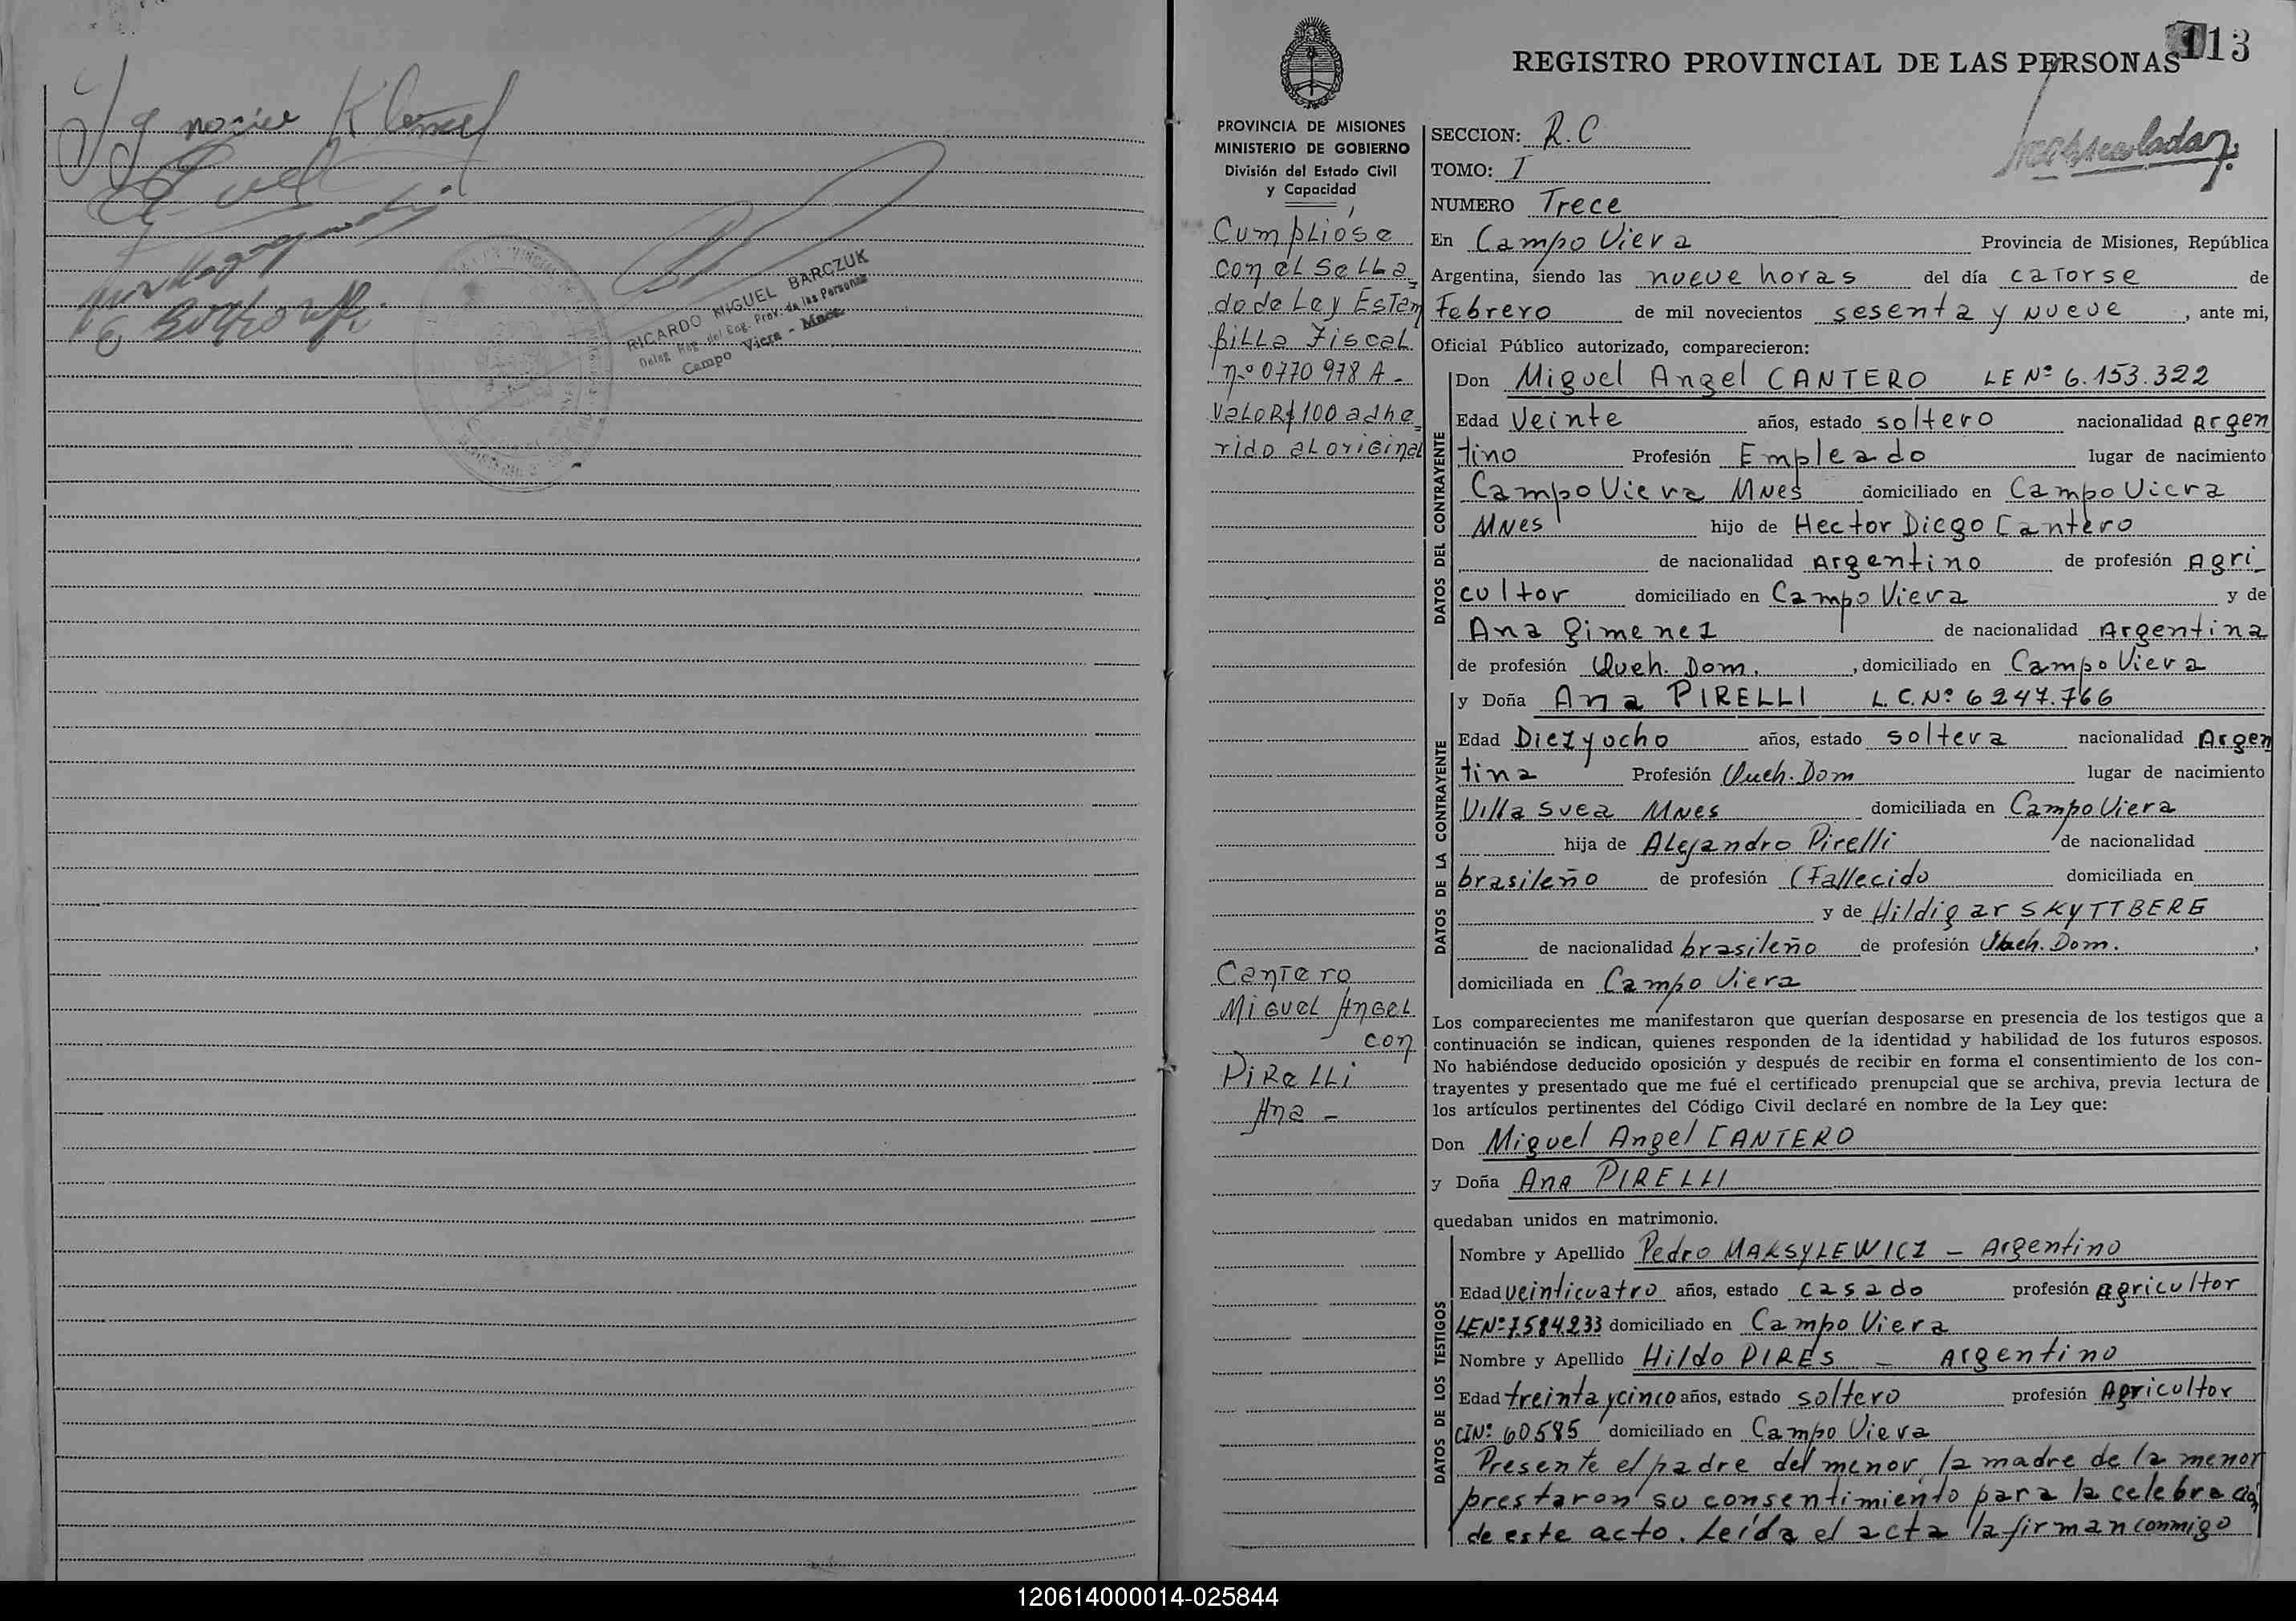 RICARDO MIGUEL BARCZUK
Deleg. Reg. del Reg. Prov. de las Personas
Campo Viera - Mnes.
113
REGISTRO PROVINCIAL DE LAS PERSONAS
PROVINCIA DE MISIONES
MINISTERIO DE GOBIERNO
División del Estado Civil
y Capacidad
Cumplióse
con el Sella_
do de Ley Estam
pilla Fiscal
nº 0770978 A.-
Valor $ 100 adhe_
rido al original
Cantero
Miguel Angel
con
Pirelli
Ana -
SECCION: R.C
TOMO: I
NUMERO Trece
En Campo Viera Provincia de Misiones, República
Argentina, siendo las nueve horas del día catorse de
Febrero de mil novecientos sesenta y nueve, ante mi,
Oficial Público autorizado, comparecieron:
DATOS DEL CONTRAYENTE
Don Miguel Angel CANTERO LE Nº 6.153.322
Edad Veinte años, estado soltero nacionalidad Argen
tino Profesión Empleado lugar de nacimiento
Campo Viera Mnes domiciliado en Campo Viera
Mnes hijo de Hector Diego Cantero
de nacionalidad Argentino de profesión Agri_
cultor domiciliado en Campo Viera y de
Ana Gimenez de nacionalidad Argentina
de profesión Queh. Dom., domiciliado en Campo Viera
DATOS DE LA CONTRAYENTE
y Doña Ana PIRELLI L.C.Nº 6247.766
Edad Diez y ocho años, estado soltera nacionalidad Argen
tina Profesión Queh. Dom lugar de nacimiento
Villa Svea Mnes domiciliada en Campo Viera
hija de Alejandro Pirelli de nacionalidad
brasileño de profesión (Fallecido domiciliada en
y de Hildigar SKYTTBERG
de nacionalidad brasileño de profesión Queh. Dom.,
domiciliada en Campo Viera
Los comparecientes me manifestaron que querían desposarse en presencia de los testigos que a
continuación se indican, quienes responden de la identidad y habilidad de los futuros esposos.
No habiéndose deducido oposición y después de recibir en forma el consentimiento de los con-
trayentes y presentado que me fué el certificado prenupcial que se archiva, previa lectura de
los artículos pertinentes del Código Civil declaré en nombre de la Ley que:
Don Miguel Angel CANTERO
y Doña Ana PIRELLI
quedaban unidos en matrimonio.
DATOS DE LOS TESTIGOS
Nombre y Apellido Pedro MAKSYLEWICZ - Argentino
Edad veinticuatro años, estado casado profesión agricultor
LENº 7.584.233 domiciliado en Campo Viera
Nombre y Apellido Hildo PIRES - Argentino
Edad treinta y cinco años, estado soltero profesión Agricultor
CINº 60.585 domiciliado en Campo Viera
Presente el padre del menor, la madre de la menor
prestaron su consentimiento para la celebració
de este acto. Leída el acta la firman conmigo
120614000014-025844